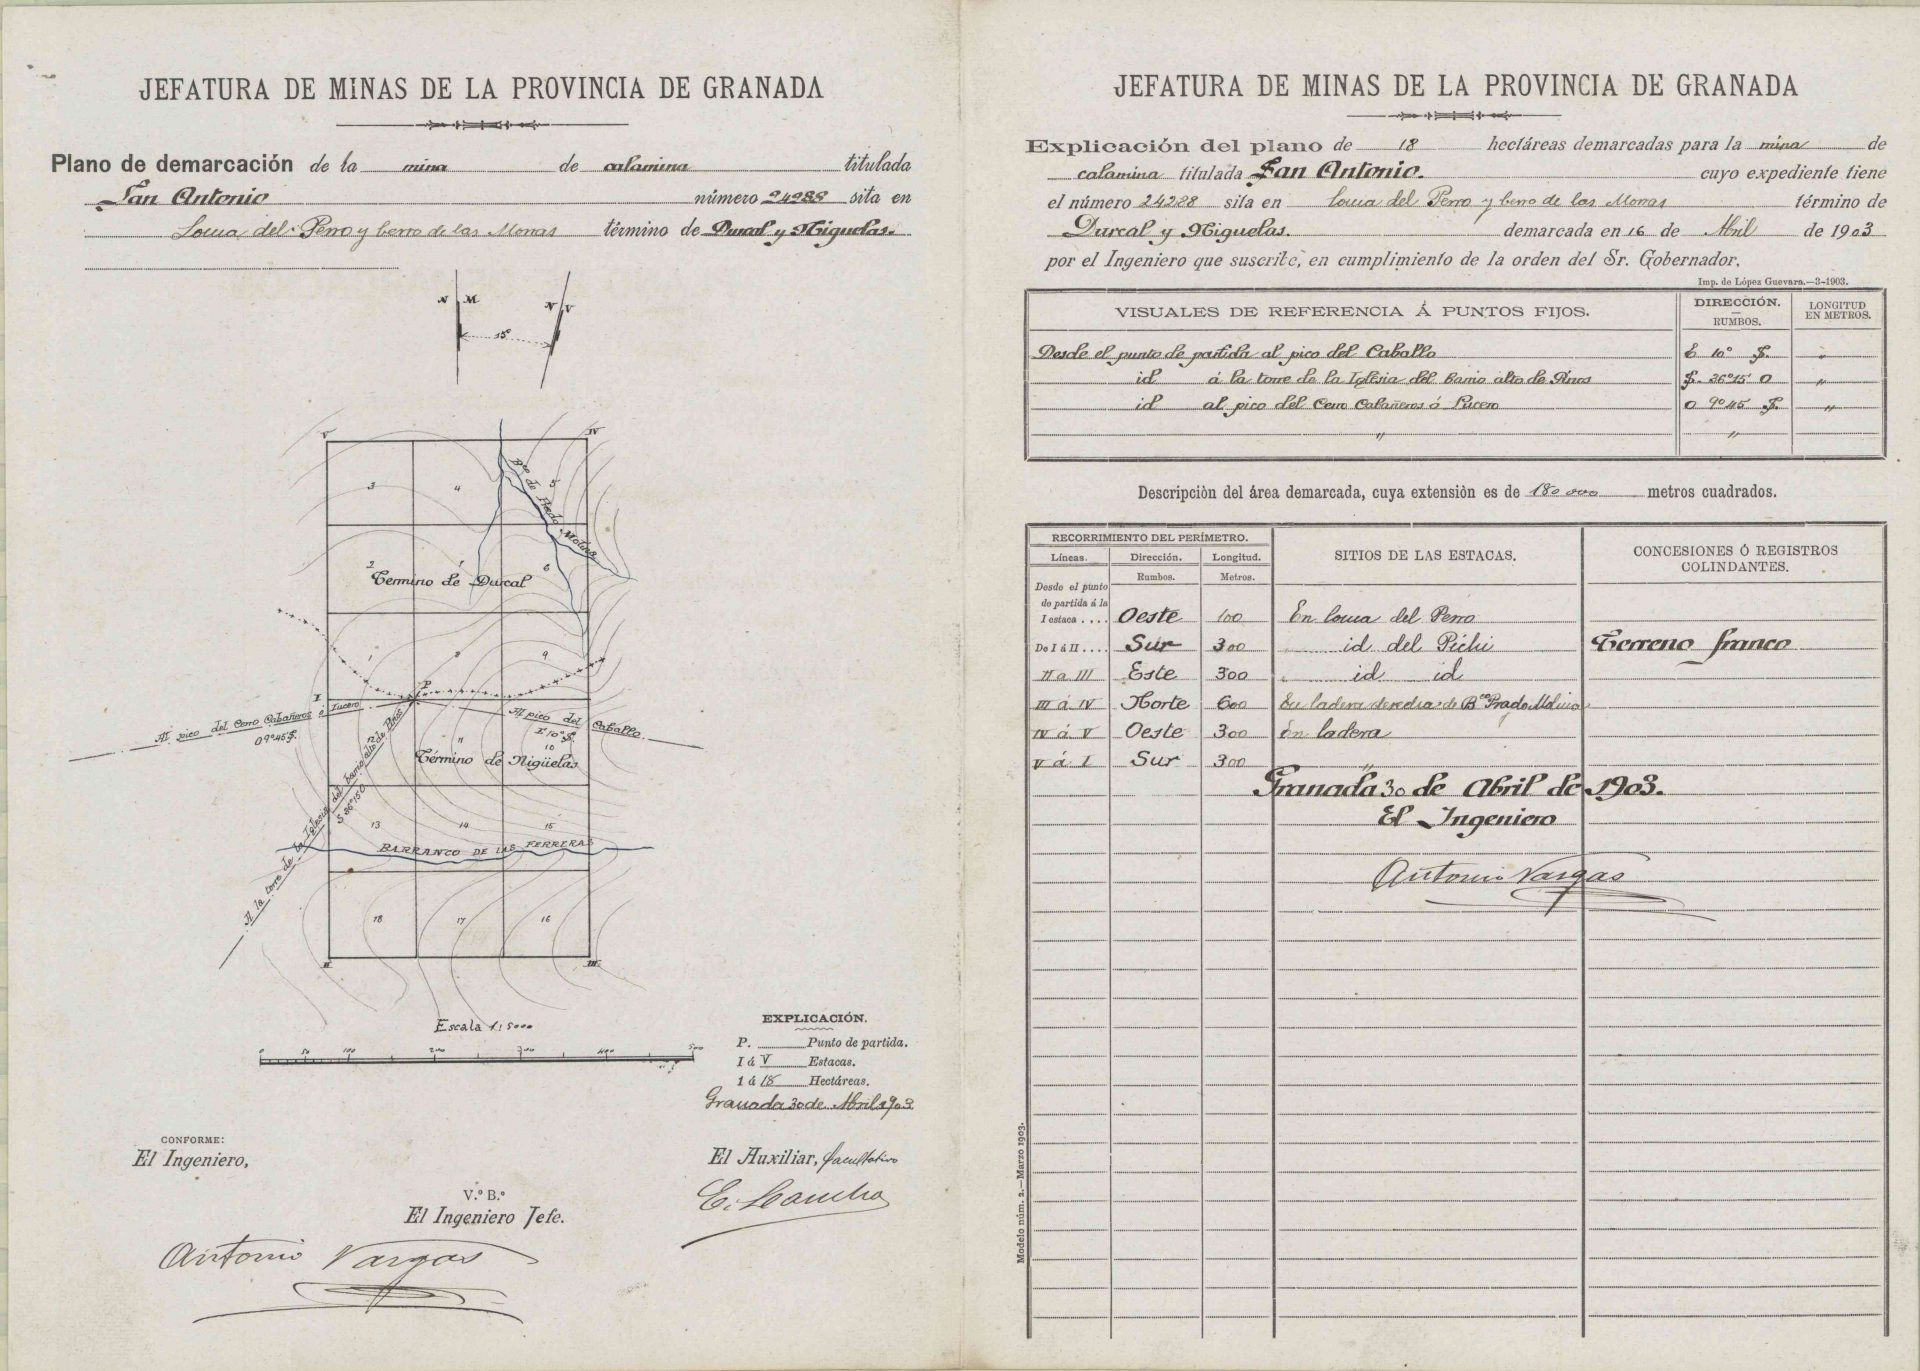 JEFATURA DE MINAS DE LA PROVINCIA DE GRANADA
Plano de demarcación de la mina de calamina titulada
San Antonio número 24288 sita en
Loma del Perro y berro de las Monas término de Durcal y Nigüelas.
N M
N V
15º
V
IV
3
4
5
Bco de Prado Molina
2
7
6
Término de Durcal
1
8
9
I
P
Al pico del Cerro Cabañeros ó Lucero
O 9º 45' S.
Al pico del Caballo
E 10º S.
12
11
10
Término de Nigüelas
A la torre de la Iglesia del barrio alto de Pinos
S 36º 15' O
13
14
15
BARRANCO DE LAS FERRERAS
18
17
16
II
III
Escala 1:5000
0 50 100 200 300 400 500
EXPLICACIÓN.
P. Punto de partida.
I á V Estacas.
1 á 18 Hectáreas.
Granada 30 de Abril 1903
CONFORME:
El Ingeniero,
El Auxiliar, facultativo
V.º B.º
El Ingeniero Jefe.
Antonio Vargas
JEFATURA DE MINAS DE LA PROVINCIA DE GRANADA
Explicación del plano de 18 hectáreas demarcadas para la mina de
calamina titulada San Antonio. cuyo expediente tiene
el número 24228 sita en Loma del Perro y berro de las Monas término de
Durcal y Nigüelas. demarcada en 16 de Abril de 1903
por el Ingeniero que suscribe, en cumplimiento de la orden del Sr. Gobernador.
Imp. de López Guevara.—3-1903.
VISUALES DE REFERENCIA Á PUNTOS FIJOS. DIRECCIÓN. RUMBOS. LONGITUD EN METROS.
Desde el punto de partida al pico del Caballo E 10º S. "
id á la torre de la Iglesia del Barrio alto de Pinos S. 36º 15' O "
id al pico del Cerro Cabañeros ó Lucero O 9º 45' S. "
" "
Descripción del área demarcada, cuya extensión es de 180 000 metros cuadrados.
RECORRIMIENTO DEL PERÍMETRO. SITIOS DE LAS ESTACAS. CONCESIONES Ó REGISTROS COLINDANTES.
Líneas. Dirección. Longitud.
Rumbos. Metros.
Desde el punto
de partida á la
I estaca.... Oeste 100 En loma del Perro
De I á II.... Sur 300 id del Pichi Terreno franco
II a III Este 300 id id
III á IV Norte 600 En ladera derecha de Bco Prado Molina
IV á V Oeste 300 En ladera
V á I Sur 300 "
Granada 30 de Abril de 1903.
El Ingeniero
Antonio Vargas
Modelo núm. 2.—Marzo 1903.